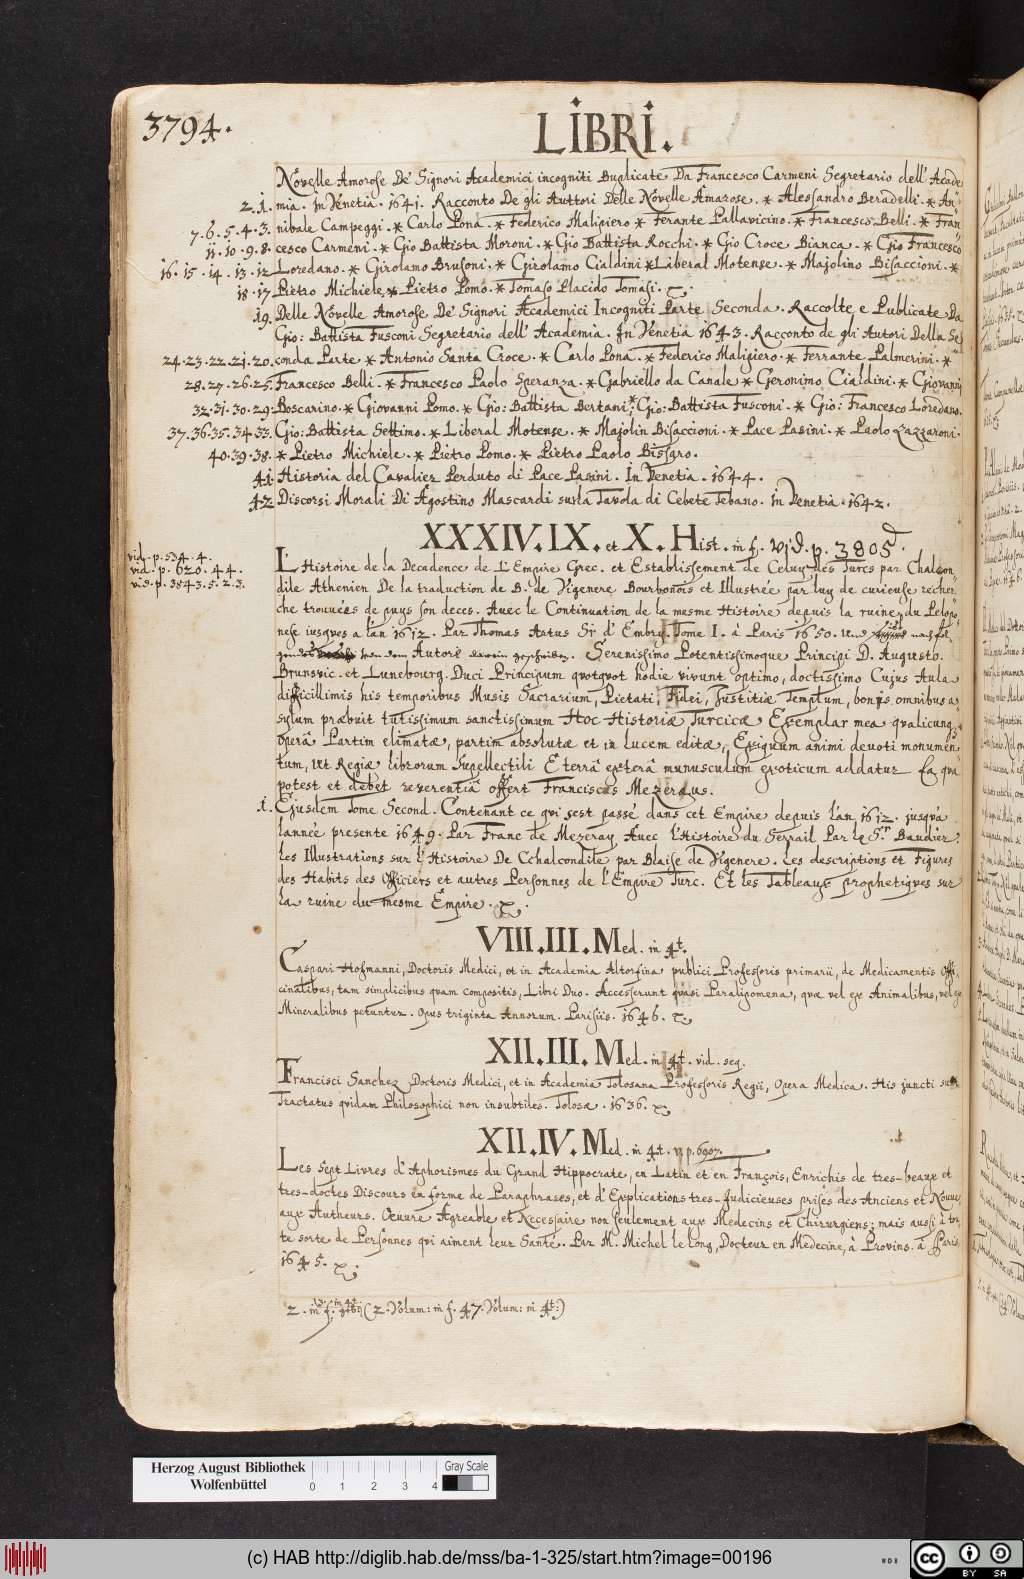 3794.
LIBRI.
Novelle Amorose De' Signori Academici incogniti Duplicate Da Francesco Carmeni Segretario dell' Acade
2. 1. mia. in Venetia. 1641. Racconto De gli Auttori Delle Novelle Amarose. * Alessandro Beradelli. * An-
7. 6. 5. 4. 3. nibale Campeggi. * Carlo Pona. * Federico Malipiero * Ferante Pallavicino. * Francesco Belli. * Fran-
11. 10. 9. 8. cesco Carmeni. * Gio Battista Moroni. * Gio Battista Rocchi. * Gio Croce Bianca. * Gio Francesco
16. 15. 14. 13. 12 Loredano. * Girolamo Brusoni. * Girolamo Cialdini * Liberal Motense. * Majolino Bisaccioni. *
18. 17 Pietro Michiele * Pietro Pomo. * Tomaso Placido Tomasi.
19. Delle Novelle Amorose De' Signori Academici Incogniti Parte Seconda. Raccolte e Publicate Da
Gio: Battista Fusconi Segretario dell' Academia. In Venetia 1643. Racconto de gli Autori Della Se-
24. 23. 22. 21. 20. conda Parte * Antonio Santa Croce. * Carlo Pona. * Federico Malipiero * Ferrante Palmerini. *
28. 27. 26. 25. Francesco Belli. * Francesco Paolo Speranza. * Gabriello da Canale * Geronimo Cialdini. * Giovanni
32. 31. 30. 29. Boscarino. * Giovanni Pomo. * Gio: Battista Bertani * Gio: Battista Fusconi. * Gio: Francesco Loredano.
37. 36. 35. 34. 33. Gio: Battista Settimo. * Liberal Motense. * Majolin Bisaccioni. * Pace Pasini. * Paolo Zazzaroni.
40. 39. 38. * Pietro Michiele. * Pietro Pomo. * Pietro Paolo Bissaro.
41. Historia del Cavalier Perduto di Pace Pasini. In Venetia. 1644.
42 Discorsi Morali Di Agostino Mascardi sulla Tavola di Cebete Tebano. in Venetia. 1642.
XXXIV. IX. et X. Hist. in f. vid. p. 3805.
vid. p. 534. 4.
vid. p. 620. 44.
vid. p. 3843. 5. 2. 3.
L'Histoire de la Decadence de L'Empire Grec. et Establissement de Celuy des Turcs par Chalcon-
dile Athenien De la traduction de B. de Vigenere Bourbonois et Illustrée par luy de curieuse recher-
che trouuées depuys son deces. Auec le Continuation de la mesme Histoire depuis la ruine du Pelopo-
nese iusques a l'an 1612. Par Thomas Artus Sr d'Embry. Tome I. à Paris 1650. Und
Autore Serenissimo Potentissimoque Principi D. Augusto.
Brunsvic. et Lunebourg. Duci Principum quotquot hodie vivunt optimo, doctissimo Cujus Aula
difficillimis his temporibus Musis Sacrarium, Pietati, Fidei, Justitiæ Templum, bonis omnibus a-
sylum præbuit tutissimum sanctissimum Hoc Historiæ Turcicæ Exemplar mea qualicunq3
operâ Partim elimatæ, partim absolutæ et in lucem editæ, Exiguum animi devoti monumen-
tum, ut Regiæ librorum Supellectili E terrâ exterâ munusculum exoticum addatur Ea quâ
potest et debet reverentiâ offert Franciscus Mezeraus.
1. Ejusdem Tome Second. Contenant ce qui sest passé dans cet Empire depuis l'an 1612. jusqu'a
lannée presente 1649. Par Franc de Mezeray Auec l'Histoire du Serrail Par le Sr. Baudier.
Les Illustrations sur l'Histoire De Cchalcondile par Blaise de Vigenere. Les descriptions et Figures
des Habits des Officiers et autres Personnes de l'Empire Turc. Et les Tableaux prophetiques sur
la ruine du mesme Empire.
VIII. III. Med. in 4t.
Caspari Hofmanni, Doctoris Medici, et in Academia Altorfina publici Professoris primarii, de Medicamentis Offi-
cinalibus, tam simplicibus quam compositis, Libri Duo. Accesserunt quasi Paralipomena, quæ vel ex Animalibus, vel ex
Mineralibus petuntur. Opus triginta Annorum. Parisiis. 1646.
XII. III. Med. in 4t. vid. seq.
Francisci Sanchez Doctoris Medici, et in Academia Tolosana Professoris Regii, Opera Medica. His juncti sunt
Tractatus quidam Philosophici non insubtiles. Tolosæ. 1636.
XII. IV. Med. in 4t. v. p. 6907.
Les Sept Livres d'Aphorismes du Grand Hippocrate, en Latin et en François, Enrichis de tres-beaux et
tres-doctes Discours en forme de Paraphrases, et d'Explications tres-Judicieuses prises des Anciens et Nouue-
aux Autheurs. Œuure Agreable et Necessaire non seulement aux Medecins et Chirurgiens; mais aussi à tou-
te sorte de Personnes qui aiment leur Santé. Par M. Michel le Long, Docteur en Medecine, à Provins. à Paris
1645.
2. in f. (2. Volum: in f. 47. Volum: in 4t:)
Herzog August Bibliothek
Wolfenbüttel
0 1 2 3 4
Gray Scale
(c) HAB http://diglib.hab.de/mss/ba-1-325/start.htm?image=00196
WDB
cc
BY SA